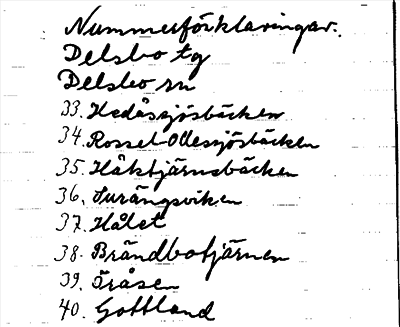 Nummerförklaringar.
Delsbo tg
Delsbo sn
33. Hedåssjösbäcken
34. Rossel-Ollessjösbäcken
35. Håktjärnsbäcken
36. Surängsviken
37. Hålet
38. Brändbotjärnen
39. Fråsen
40. Gottland